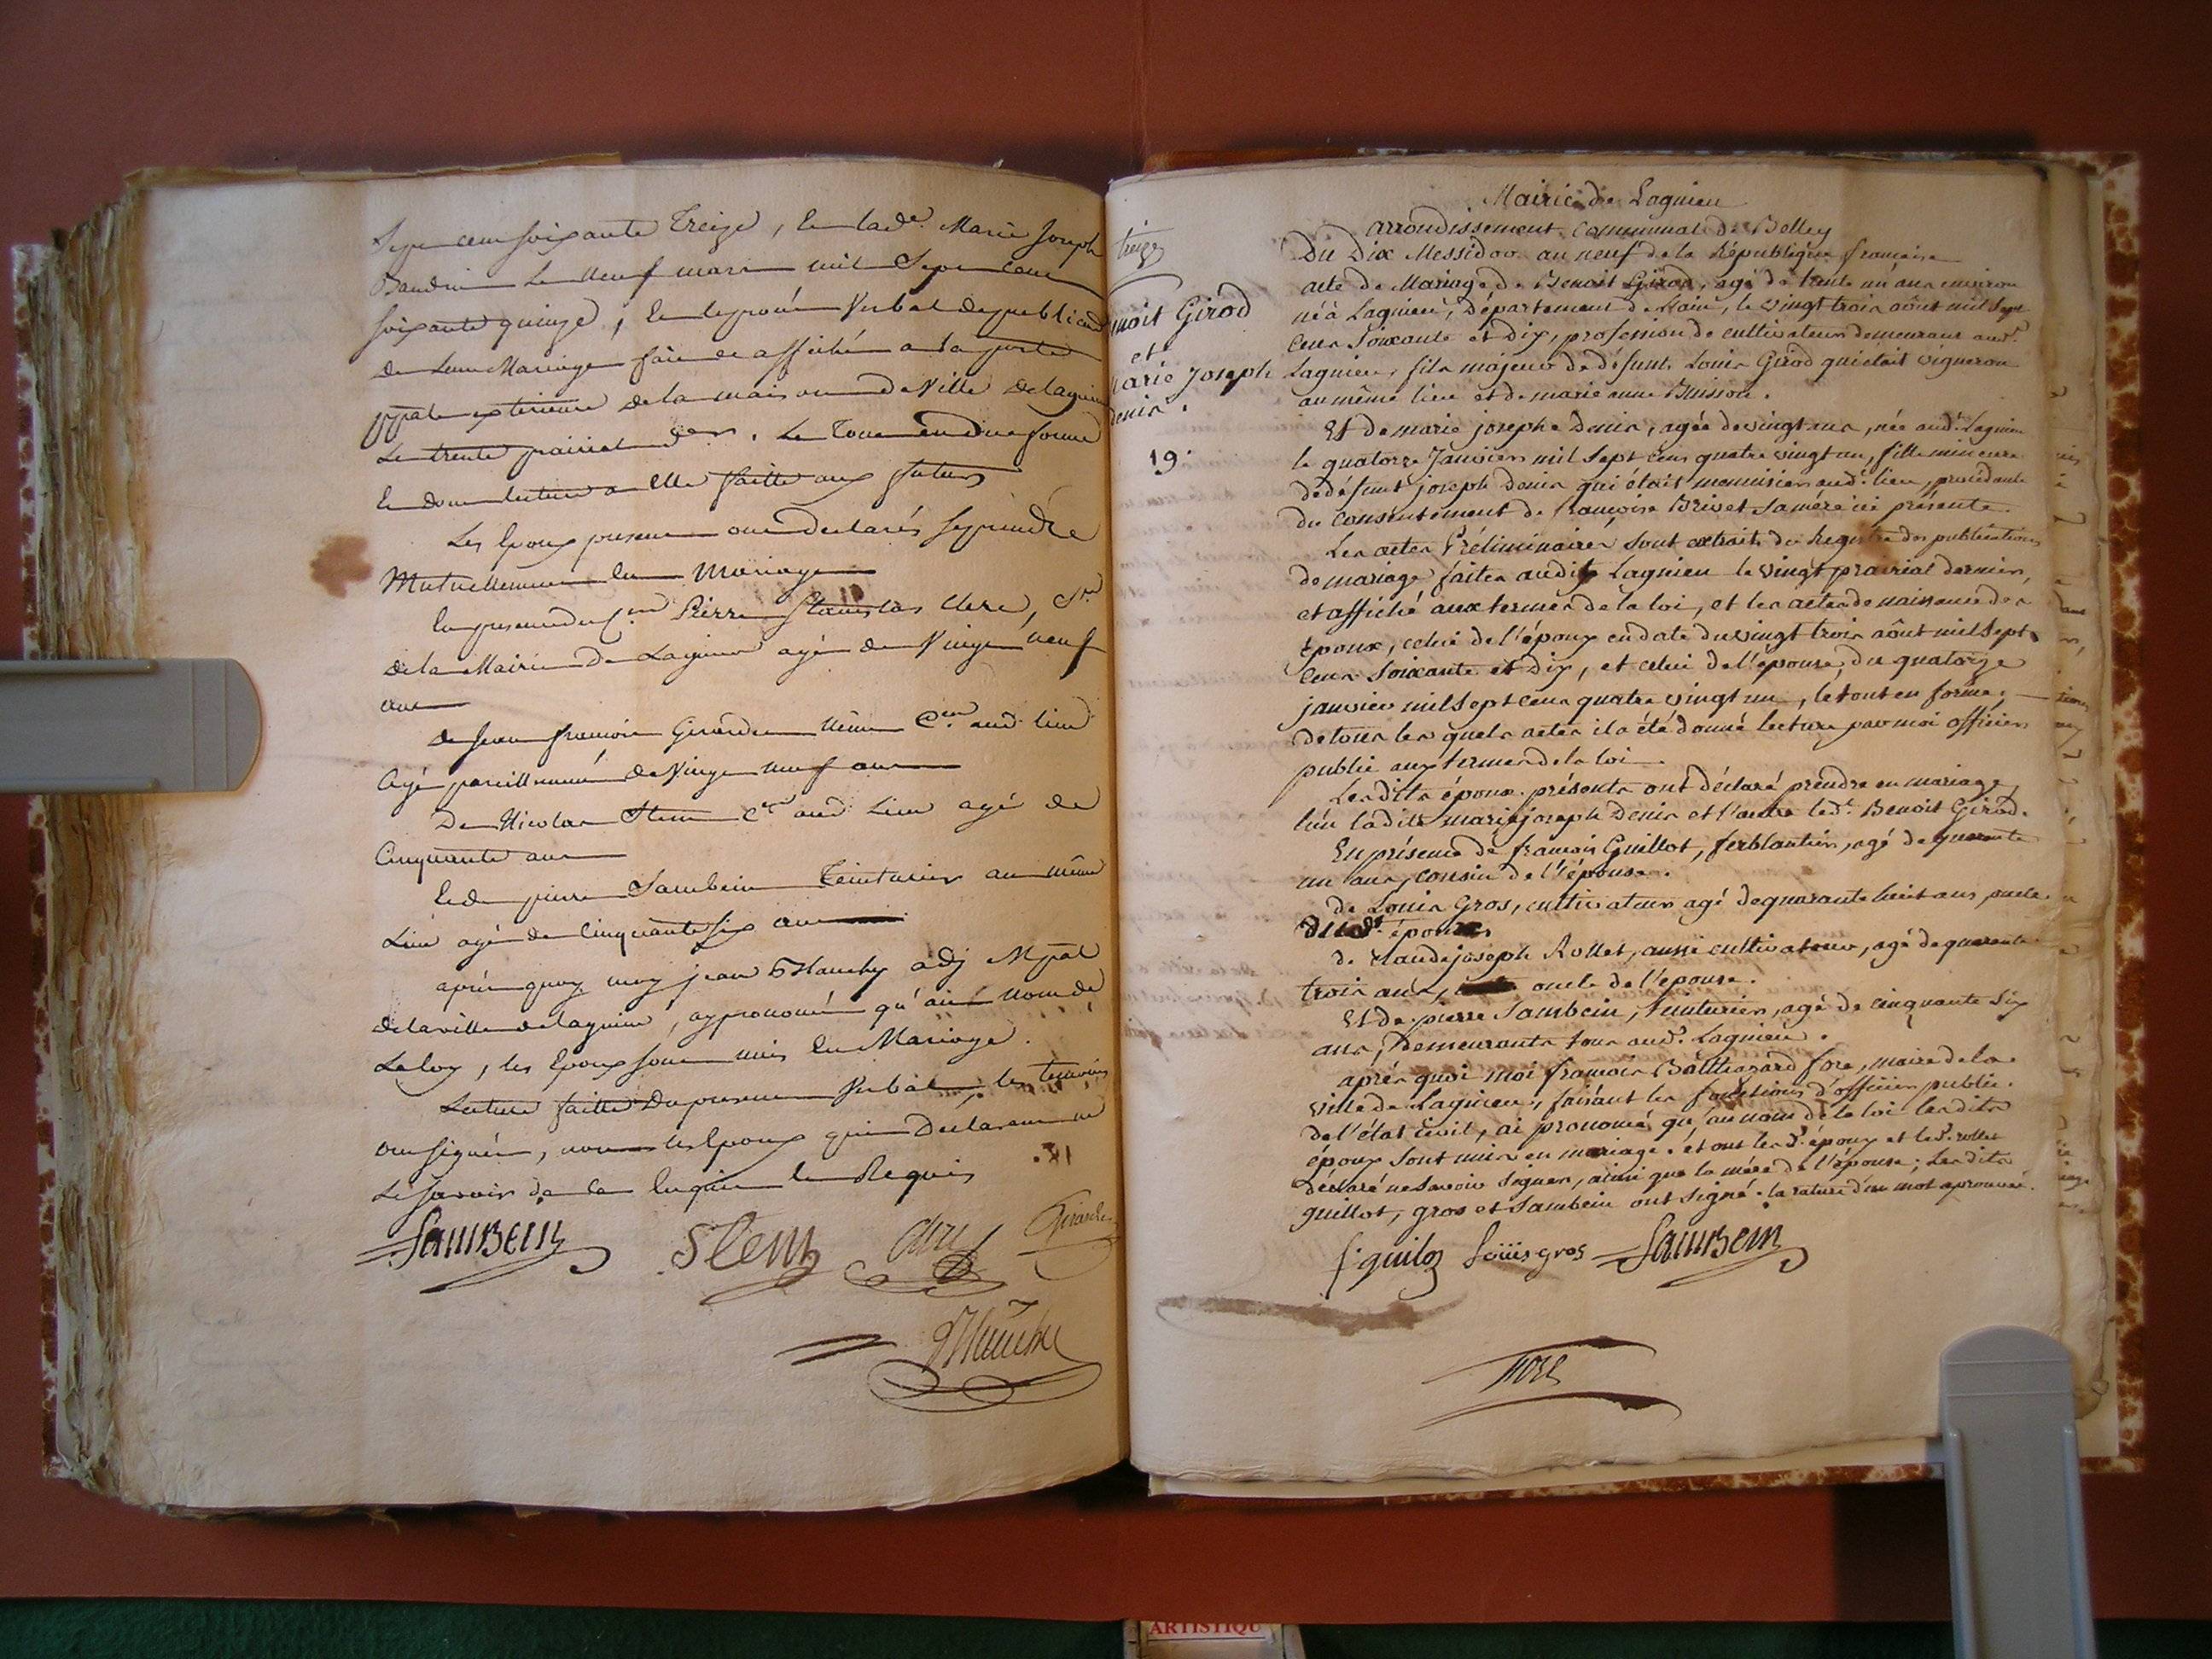 Sept cent soixante treize, et lade. Marie Joseph
Baudrin le neuf mars mil Sept cent
soixante quinze ; et le procès Verbal de publication
de leur Mariage fait et affiché a la porte
ppale exterieure de la maison de Ville de lagnieu
le trente prairial der. Le tout en due forme
et donne lecture a elle faitte aux futurs
Les Epoux present ont declarés se prendre
Mutuellement en Mariage
En presence du Cen Pierre Stanislas Clerc, Sre
de la Mairie de Lagnieu agé de Vingt neuf
ans
de jean françois Girardet même Cen aud. lieu
Agé pareillement de Vingt neuf ans
De Nicolas Stem Cen aud Lieu agé de
Cinquante ans
Et de pierre Sambein teinturier au même
Lieu agé de Cinquante six ans
après quoy moy jean adj Mpal
de la ville de lagnieu, ay prononcé qu'au nom de
La loy, les Epoux sont unis en Mariage.
Lecture faitte du present Verbal, les temoins
ont signés, non les Epoux qui declarent ne
Le savoir de ce enquis et Requis
SamBein Stem Clerc Girardet
treize
Benoit Girod
et
Marie Joseph
Denis.
19.
Mairie de Lagnieu
arrondissement Communal de Belley
Du Dix Messidor an neuf de la République française
acte de Mariage de Benoit Girod, agé de trente un ans environ
né à Lagnieu, Département de l'ain, le vingt trois août mil sept
cens soixante et dix, profession de cultivateur demeurant aud.t
Lagnieu, fils majeur de défunt Louis Girod qui était vigneron
au même lieu et de marie anne Buisson.
Et de marie josephe Denis, agée de vingt ans, née aud.t Lagnieu
le quatorze Janvier mil sept cens quatre vingt un, fille mineure
de défunt joseph denis qui était menuisier aud.t lieu, procédante
du consentement de françoise Brivet sa mére ici présente.
Les actes Préliminaires sont extraits du Registre des publications
de mariage faites audit Lagnieu le vingt prairial dernier,
et affiché aux termes de la loi, et les actes de naissance des
époux, celui de l'époux en date du vingt trois août mil sept
cens soixante et dix, et celui de l'épouse, du quatorze
janvier mil sept cens quatre vingt un, le tout en forme;
de tous les quels actes il a été donné lecture par moi officier
public aux termes de la loi.
Lesdits époux présents ont déclaré prendre en mariage
l'un ladite marie joseph Denis et l'autre led.t Benoit Girod.
En présence de françois Guillot, ferblantier, agé de quarante
un ans, cousin de l'épouse.
de Louis Gros, cultivateur agé de quarante huit ans oncle
dud.t époux
de Claude joseph Rollet, aussi cultivateur, agé de quarante
trois ans, oncle de l'épouse.
Et de pierre Sambein, teinturier, agé de cinquante six
ans, Demeurants tous aud.t Lagnieu.
après quoi moi françois Balthazard fore, maire de la
ville de Lagnieu, faisant les fonctions d'officier public
de l'état civil, ai prononcé qu'au nom de la loi lesdits
époux sont unis en mariage. et ont les d.t époux et led.t rollet
déclaré ne savoir signer, ainsi que la mére de l'épouse; Lesdits
guillot, gros et Sambein ont signé. la rature d'un mot aprouvée.
f. guilot Loüis gros SamBein
fore
ARTISTIQU